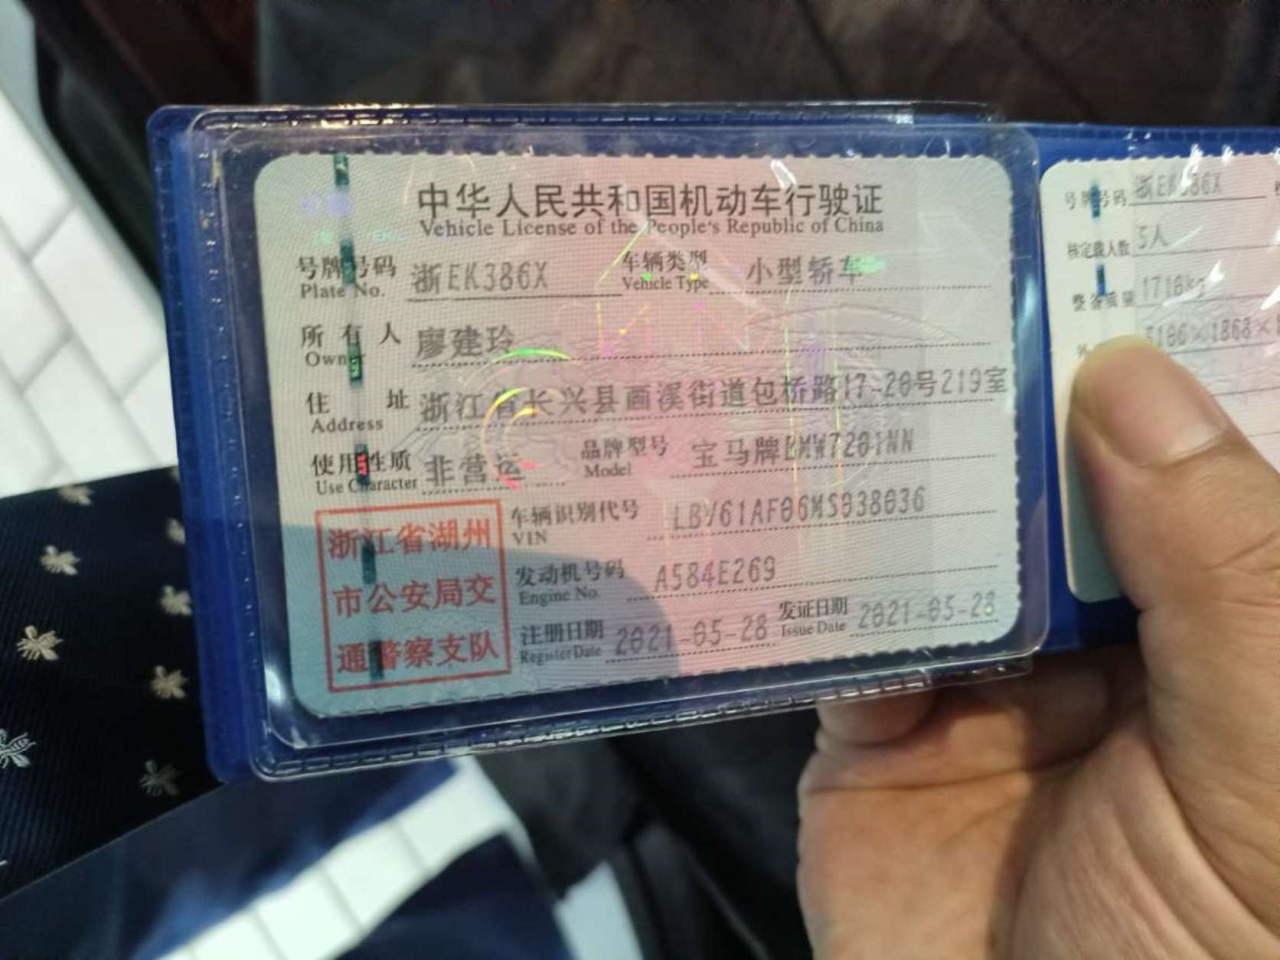 中华人民共和国机动车行驶证
Vehicle License of the People's Republic of China
号牌号码 浙EK386X 车辆类型 小型轿车
Plate No. Vehicle Type
所有人 廖建玲
Owner
住址 浙江省长兴县画溪街道包桥路17-20号219室
Address
使用性质 非营运 品牌型号 宝马牌BMW7201NN
Use Character Model
浙江省湖州
市公安局交
通警察支队
车辆识别代号 LBV61AF06MS038036
VIN
发动机号码 A584E269
Engine No.
注册日期 2021-05-28 发证日期 2021-05-28
Register Date Issue Date
号牌号码 浙EK386X
核定载人数 5人
整备质量 1710kg